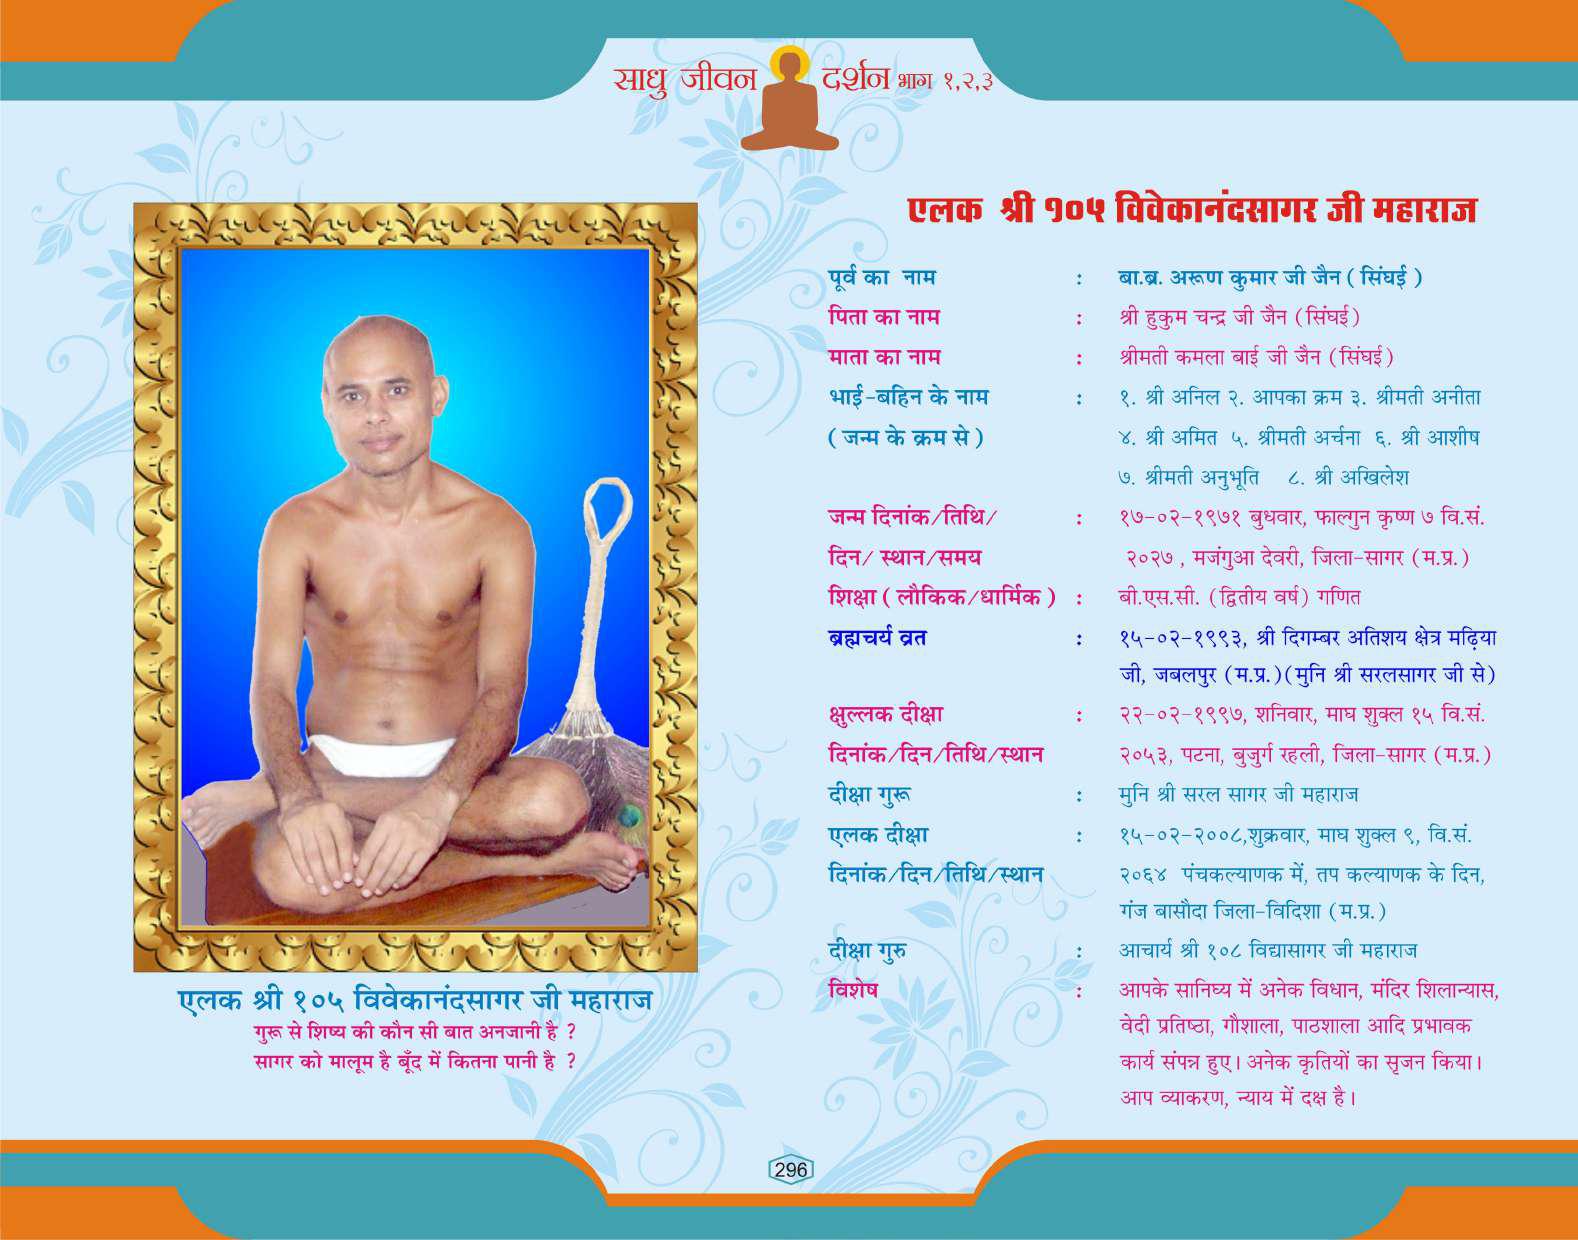 साधु जीवन दर्शन भाग १,२,३
एलक श्री १०५ विवेकानंदसागर जी महाराज
पूर्व का नाम : बा.ब्र. अरूण कुमार जी जैन ( सिंघई )
पिता का नाम : श्री हुकुम चन्द्र जी जैन (सिंघई)
माता का नाम : श्रीमती कमला बाई जी जैन (सिंघई)
भाई-बहिन के नाम : १. श्री अनिल २. आपका क्रम ३. श्रीमती अनीता
( जन्म के क्रम से ) ४. श्री अमित ५. श्रीमती अर्चना ६. श्री आशीष
७. श्रीमती अनुभूति ८. श्री अखिलेश
जन्म दिनांक/तिथि/ : १७-०२-१९७१ बुधवार, फाल्गुन कृष्ण ७ वि.सं.
दिन/ स्थान/समय २०२७ , मजंगुआ देवरी, जिला-सागर (म.प्र.)
शिक्षा ( लौकिक/धार्मिक ) : बी.एस.सी. (द्वितीय वर्ष) गणित
ब्रह्मचर्य व्रत : १५-०२-१९९३, श्री दिगम्बर अतिशय क्षेत्र मढ़िया
जी, जबलपुर (म.प्र.)(मुनि श्री सरलसागर जी से)
क्षुल्लक दीक्षा : २२-०२-१९९७, शनिवार, माघ शुक्ल १५ वि.सं.
दिनांक/दिन/तिथि/स्थान २०५३, पटना, बुजुर्ग रहली, जिला-सागर (म.प्र.)
दीक्षा गुरू : मुनि श्री सरल सागर जी महाराज
एलक दीक्षा : १५-०२-२००८,शुक्रवार, माघ शुक्ल ९, वि.सं.
दिनांक/दिन/तिथि/स्थान २०६४ पंचकल्याणक में, तप कल्याणक के दिन,
गंज बासौदा जिला-विदिशा (म.प्र.)
दीक्षा गुरु : आचार्य श्री १०८ विद्यासागर जी महाराज
विशेष : आपके सानिध्य में अनेक विधान, मंदिर शिलान्यास,
वेदी प्रतिष्ठा, गौशाला, पाठशाला आदि प्रभावक
कार्य संपन्न हुए। अनेक कृतियों का सृजन किया।
आप व्याकरण, न्याय में दक्ष है।
एलक श्री १०५ विवेकानंदसागर जी महाराज
गुरू से शिष्य की कौन सी बात अनजानी है ?
सागर को मालूम है बूँद में कितना पानी है ?
296